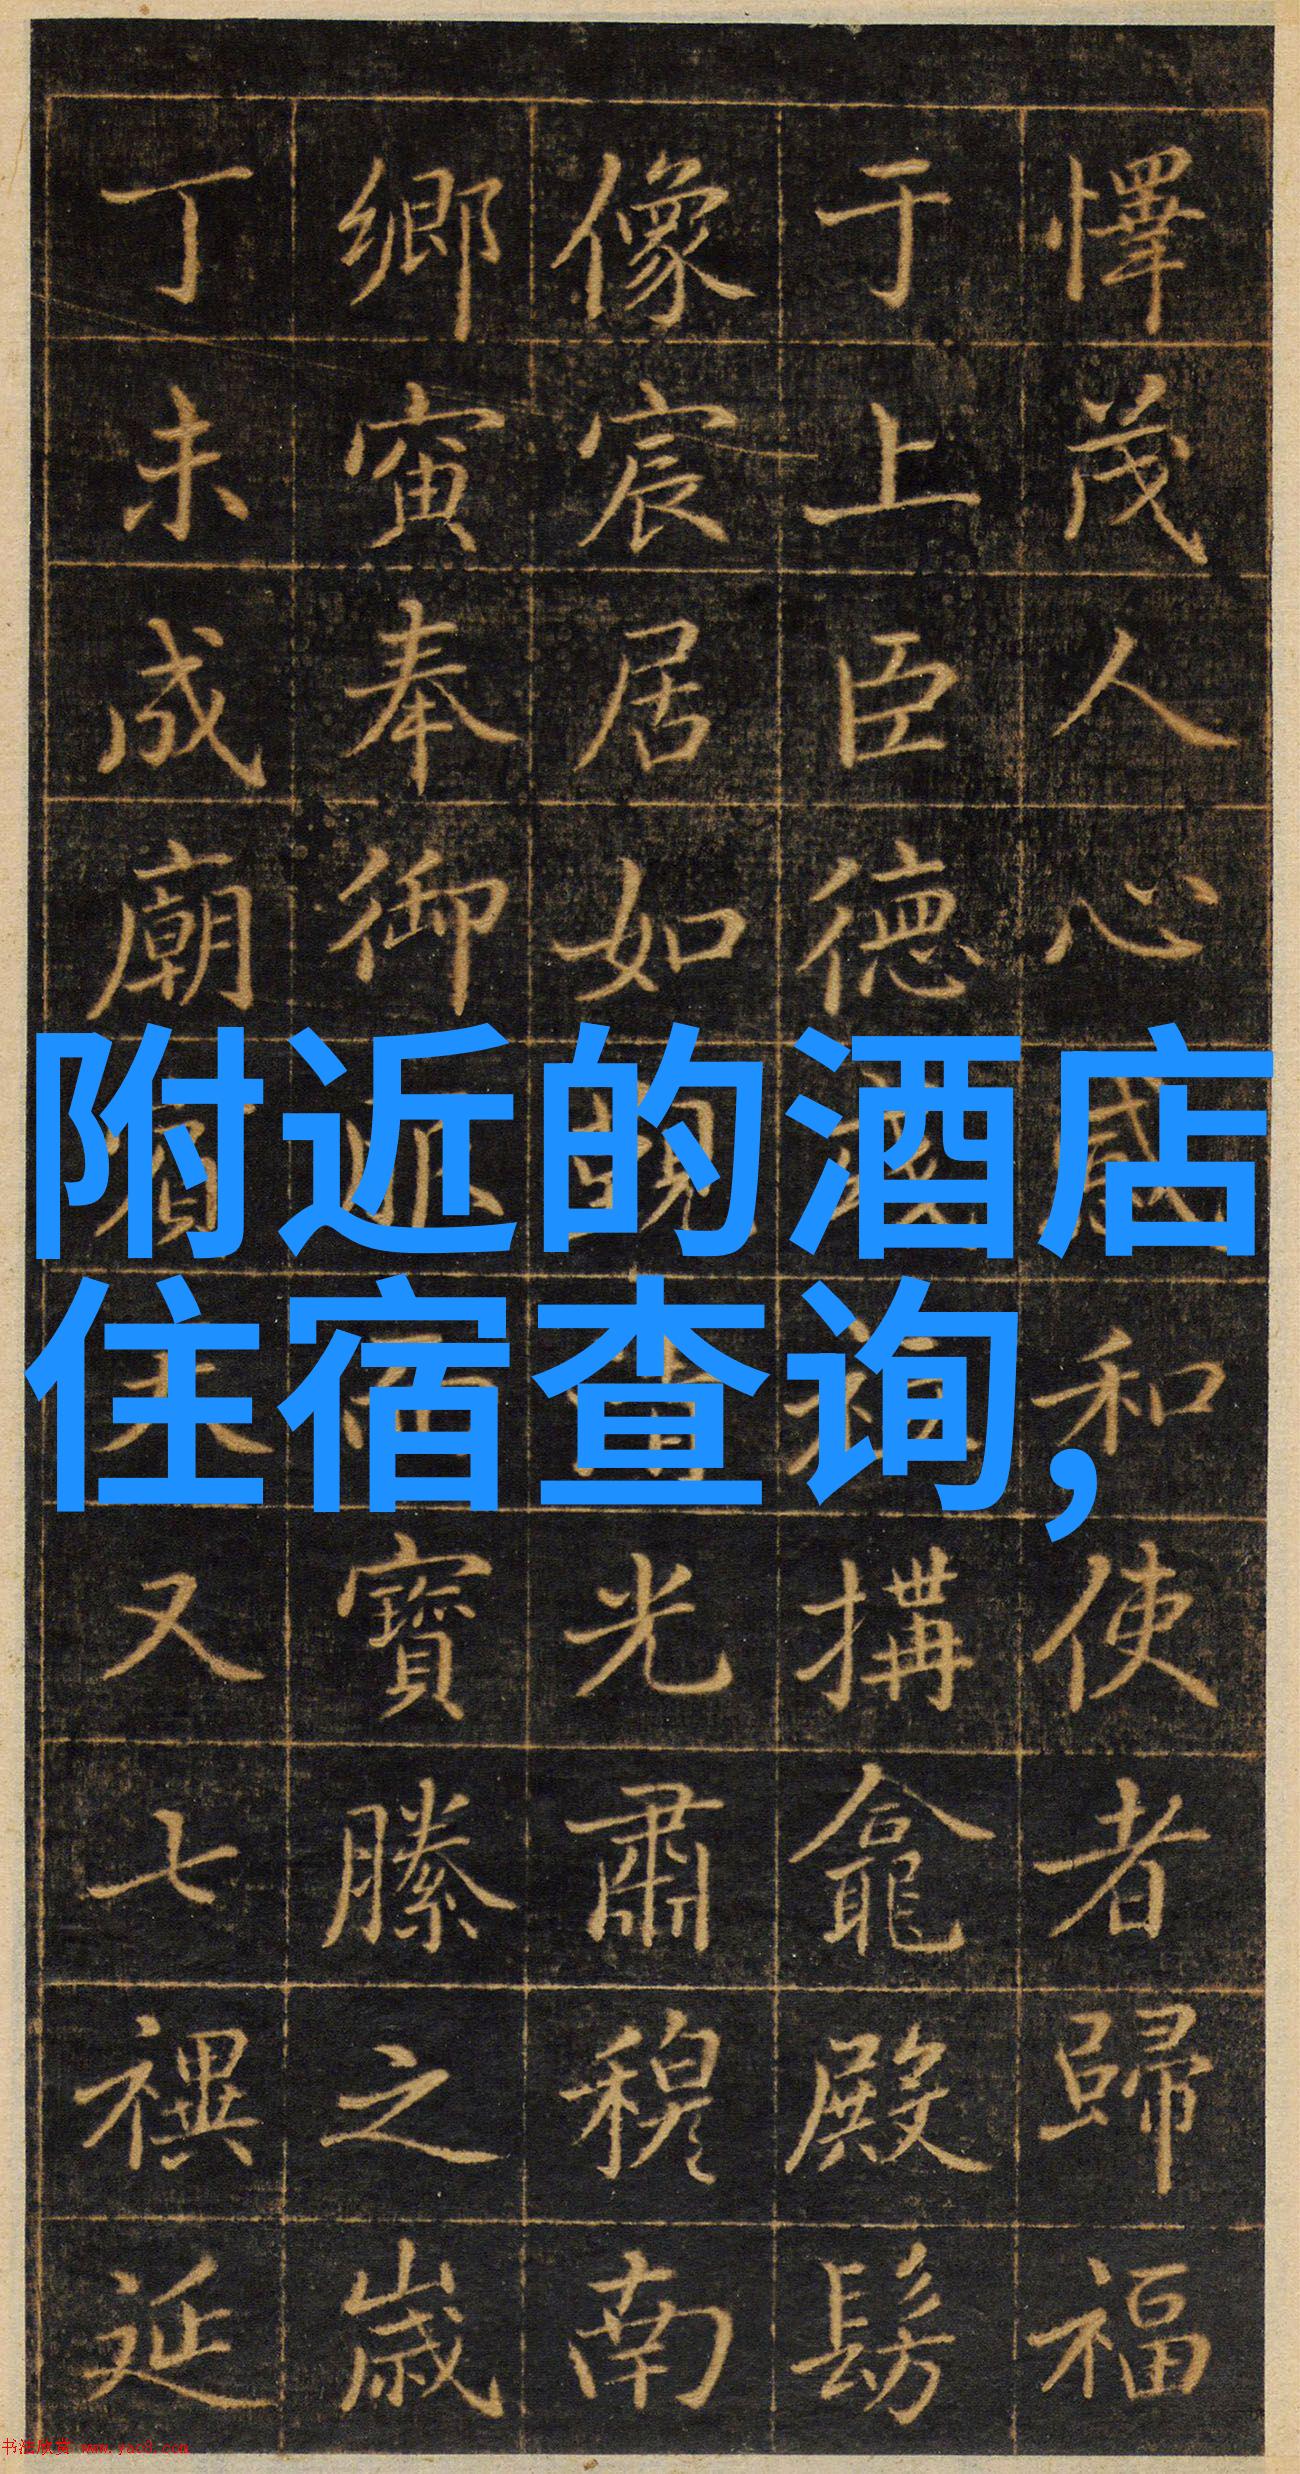 懌茂人心感和使者歸福
于上臣德搆龕殿髣
像宸居如光肅穆南
鄉寅奉御寶縢之歲
丁未成廟又七禩延
附近的酒店
住宿查询,
书法欣赏 www.yac8.com